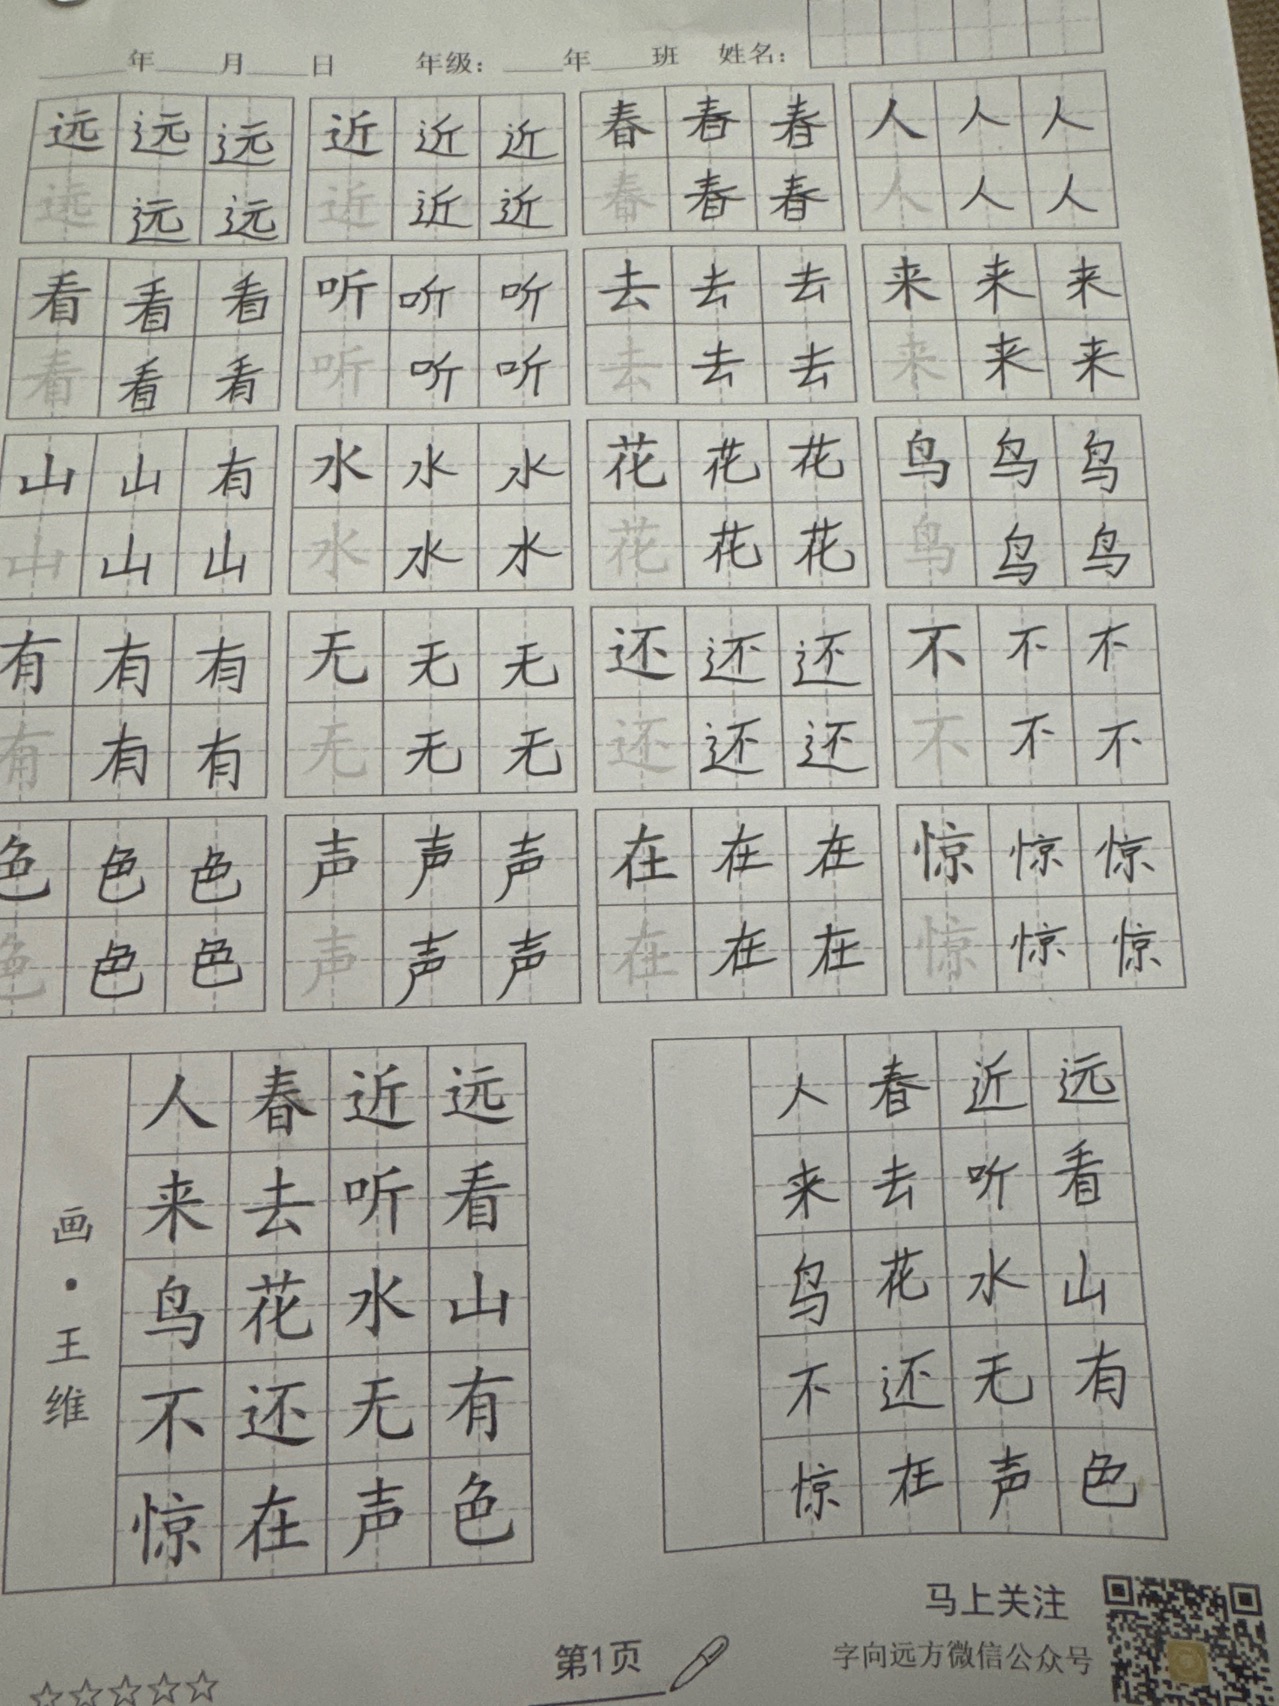 年 月 日 年级： 年 班 姓名：
远 远 远 近 近 近 春 春 春 人 人 人
远 远 远 近 近 近 春 春 春 人 人 人
看 看 看 听 听 听 去 去 去 来 来 来
看 看 看 听 听 听 去 去 去 来 来 来
山 山 有 水 水 水 花 花 花 鸟 鸟 鸟
山 山 山 水 水 水 花 花 花 鸟 鸟 鸟
有 有 有 无 无 无 还 还 还 不 不 不
有 有 有 无 无 无 还 还 还 不 不 不
色 色 色 声 声 声 在 在 在 惊 惊 惊
色 色 色 声 声 声 在 在 在 惊 惊 惊
远看山有色
近听水无声
春去花还在
人来鸟不惊
画·王维
远看山有色
近听水无声
春去花还在
人来鸟不惊
马上关注
字向远方微信公众号
第1页